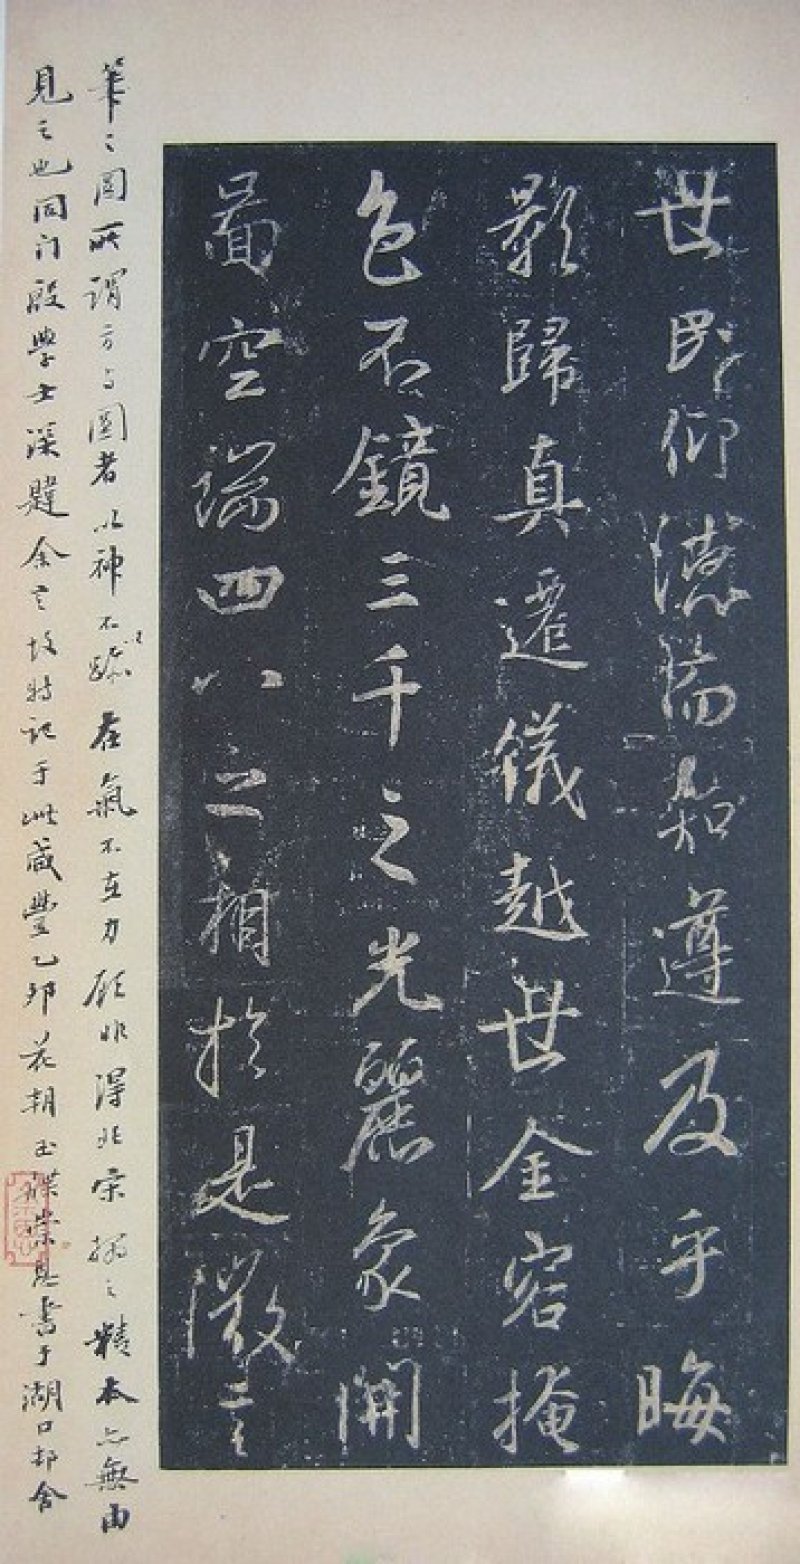 世民仰德而知遵及乎晦
影歸真遷儀越世金容掩
色不鏡三千之光麗象開
圖空端四八之相於是微言
筆之圓所謂方与圓者以神不以跡在氣不在力顧非得北宋拓之精本亦無由
見之也同門殷學士深韙余言故特記于此咸豐乙卯花朝玉牒崇恩書于湖口邸舍